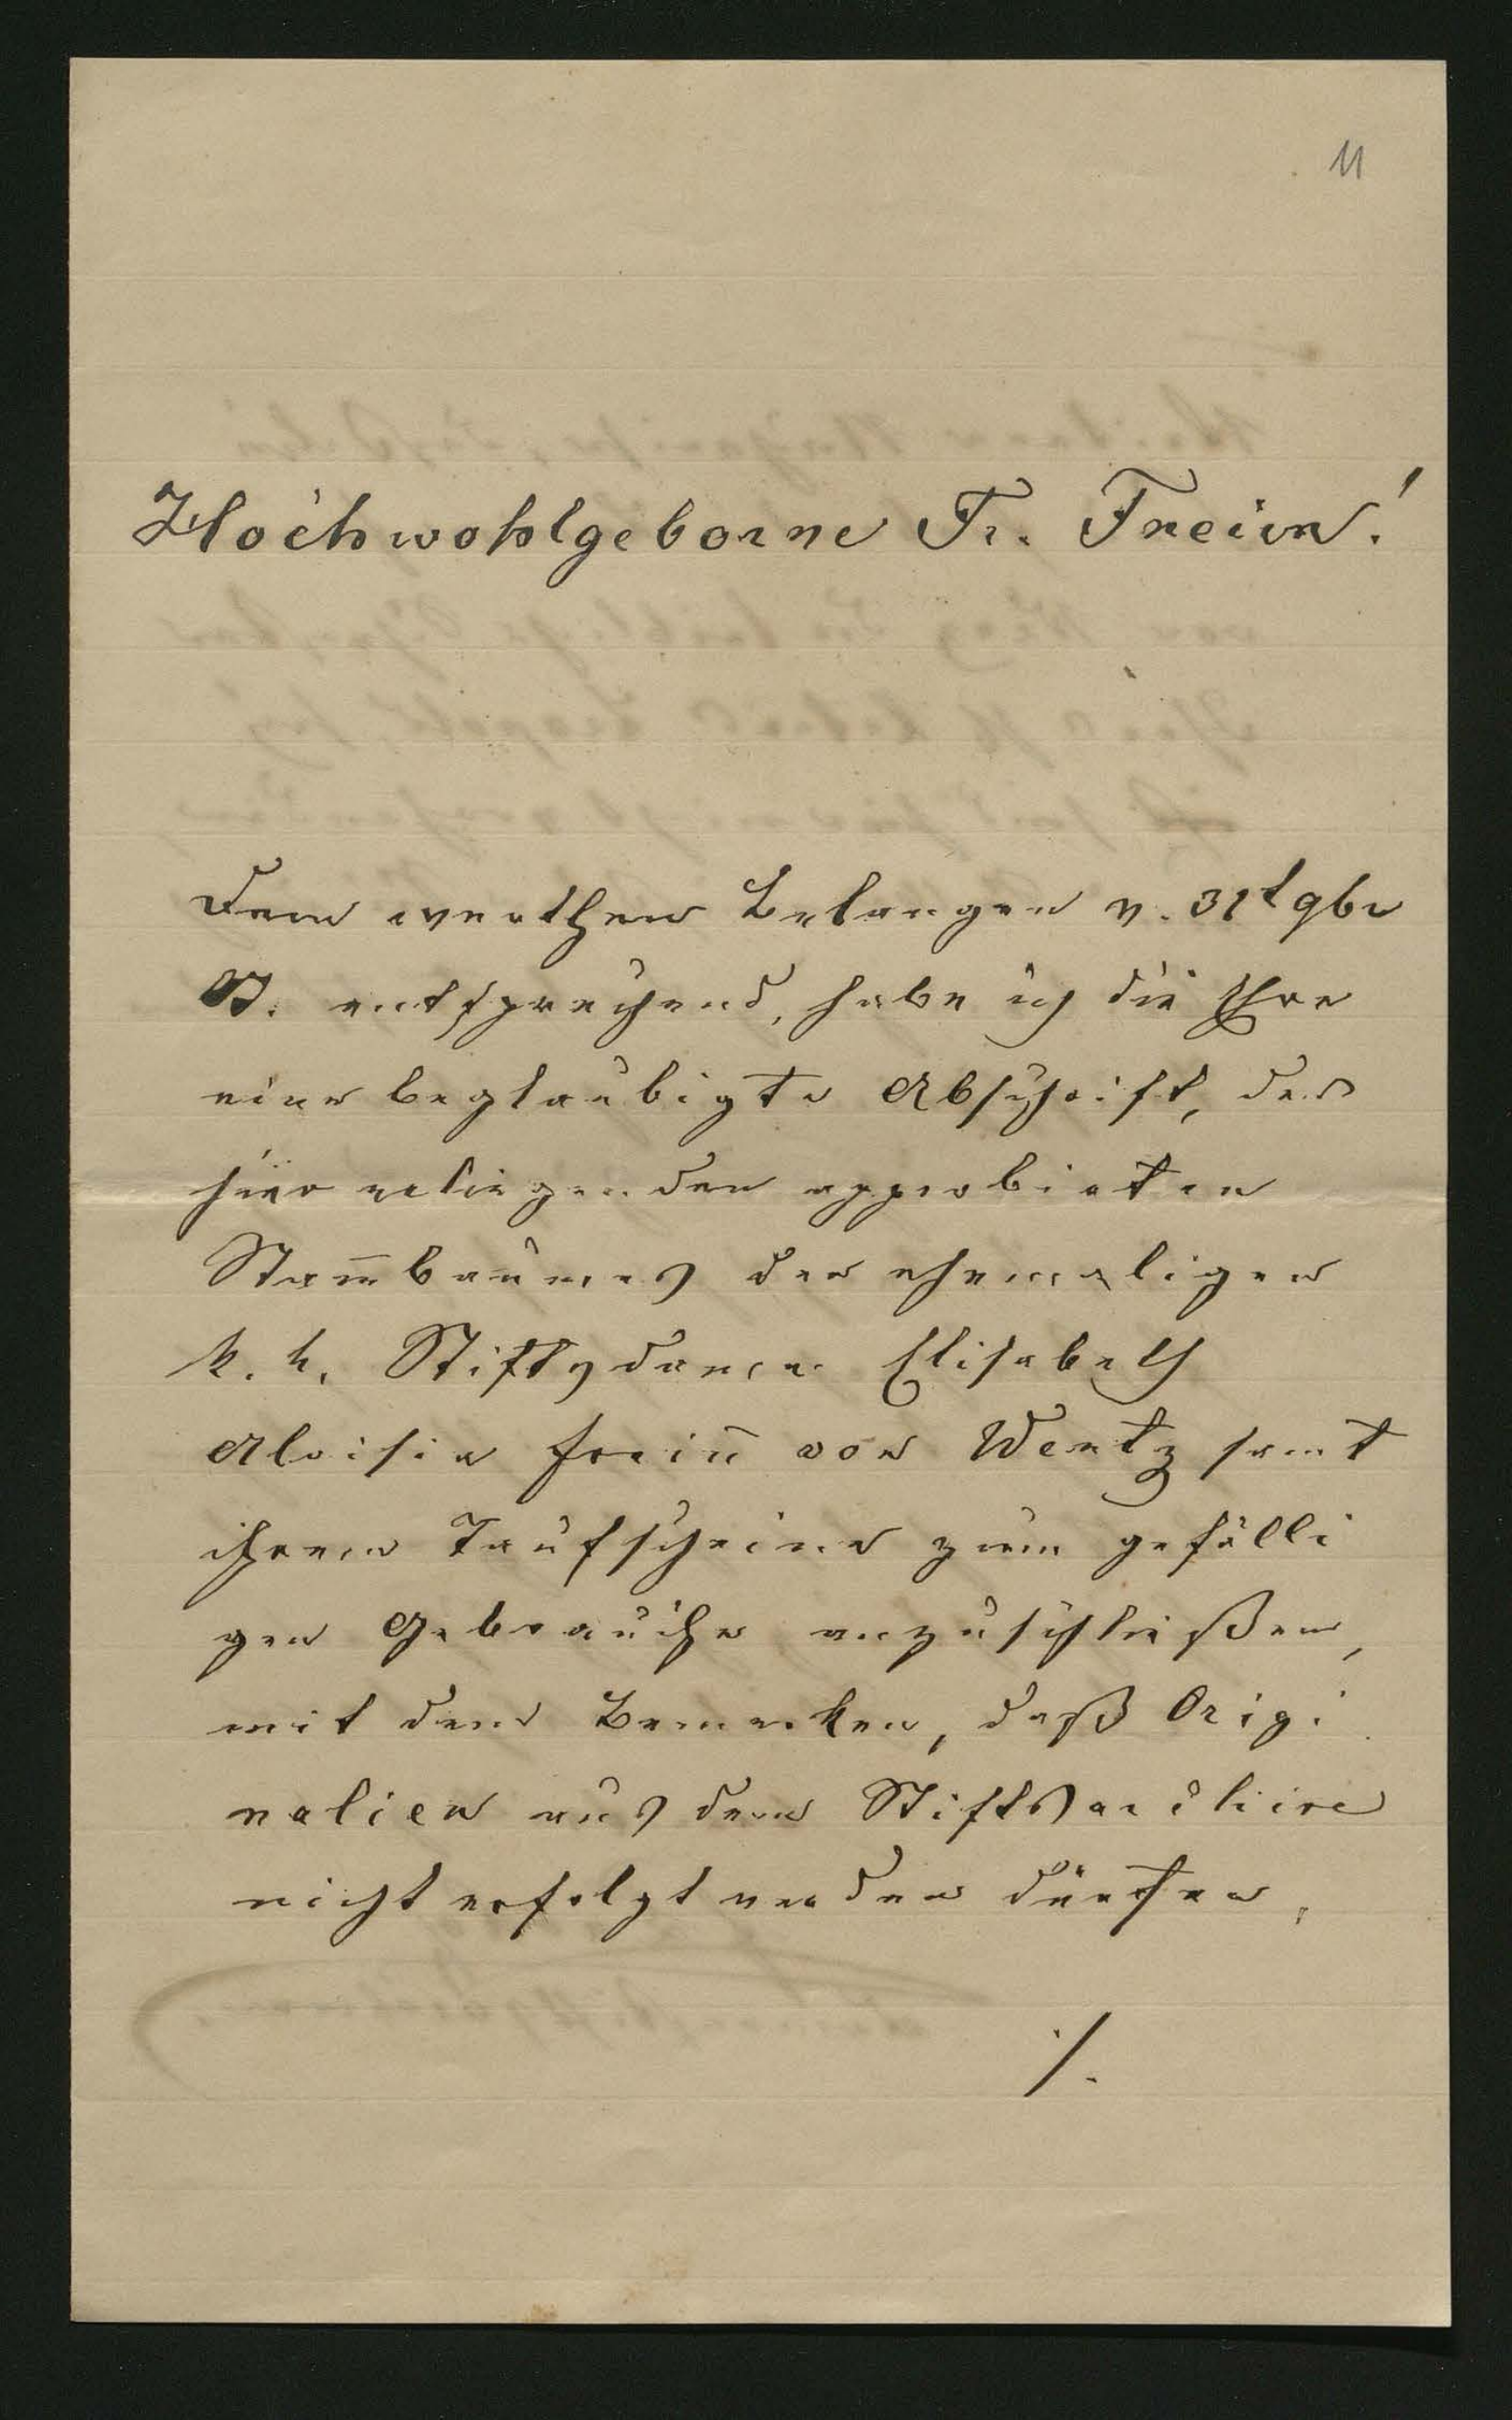 11
Hochwohlgeborne Fr. Freiin!
Dem werthen Belangen v. 31t 9br
D. entsprechend, habe ich die Ehre
eine beglaubigte Abschrift, des
hier erliegenden approbirten
Stam̅baumes der ehemaligen
k. k. Stiftsdame Elisabeth
Aloisia Freiin̅ von Wentz samt
ihrem Taufscheine zum gefälli
gen Gebrauche anzuschließen,
mit dem Bemerken, daß Origi
nalien aus dem Stiftsarchive
nicht erfolgt werden dürfen,
./.